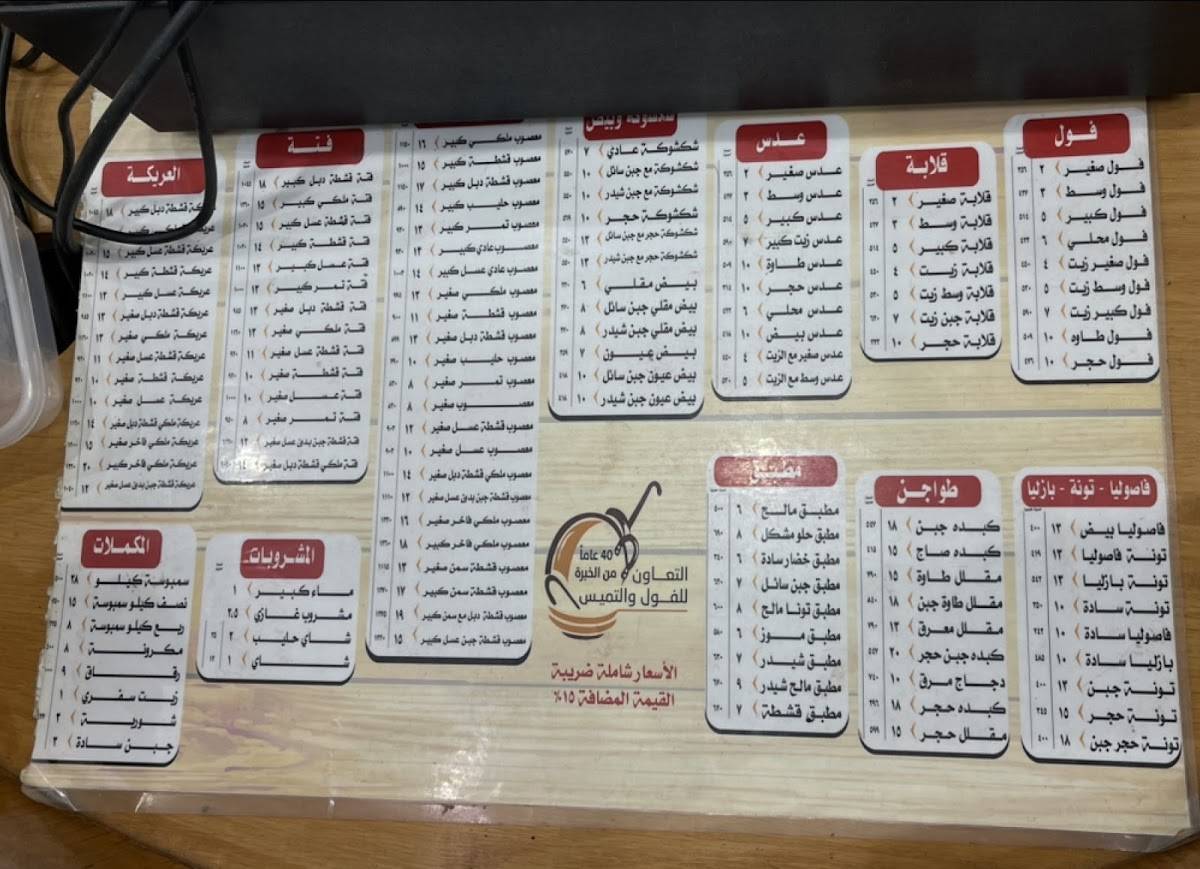 فول
فول صغير ٢
فول وسط ٣
فول كبير ٥
فول محلي ٦
فول صغير زيت ٤
فول وسط زيت ٥
فول كبير زيت ٧
فول طاوه ١٠
فول حجر ١٠
قلابة
قلابة صغير ٢
قلابة وسط ٣
قلابة كبير ٥
قلابة زيت ٤
قلابة وسط زيت ٥
قلابة جبن زيت ٧
قلابة حجر ١٠
عدس
عدس صغير ٢
عدس وسط ٣
عدس كبير ٥
عدس زيت كبير ٧
عدس طاوة ١٠
عدس حجر ١٠
عدس محلي ٦
عدس بيض ١٠
عدس صغير مع الزيت ٤
عدس وسط مع الزيت ٥
شكشوكة وبيض
شكشوكة عادي ٧
شكشوكة مع جبن سائل ١٠
شكشوكة مع جبن شيدر ١٠
شكشوكة حجر ١٠
شكشوكة حجر مع جبن سائل ١٣
شكشوكة حجر مع جبن شيدر ١٣
بيض مقلي ٦
بيض مقلي جبن سائل ٨
بيض مقلي جبن شيدر ٨
بيض عيون ٧
بيض عيون جبن سائل ١٠
بيض عيون جبن شيدر ١٠
معصوب ملكي كبير ١٦
معصوب قشطة كبير ١٥
معصوب قشطة دبل كبير ١٧
معصوب حليب كبير ١٤
معصوب تمر كبير ١٣
معصوب عادي كبير ١٣
معصوب عادي عسل كبير ١٤
معصوب ملكي صغير ١٣
معصوب قشطة صغير ١١
معصوب قشطة دبل صغير ١٣
معصوب حليب صغير ١٠
معصوب تمر صغير ٨
معصوب صغير ٨
معصوب قشطة عسل صغير ١٢
معصوب عسل صغير ١٠
معصوب ملكي قشطة دبل صغير ١٤
معصوب قشطة جبن بدون عسل صغير ١٢
معصوب ملكي فاخر صغير ١٦
معصوب ملكي فاخر كبير ١٨
معصوب قشطة سمن صغير ١٣
معصوب قشطة سمن كبير ١٧
معصوب قشطة دبل مع سمن كبير ١٩
معصوب قشطة جبن عسل كبير ١٥
فتة
فتة قشطة دبل كبير ١٨
فتة ملكي كبير ١٥
فتة قشطة عسل كبير ١٦
فتة قشطة كبير ١٤
فتة عسل كبير ١٣
فتة تمر كبير ١٢
فتة قشطة دبل صغير ١٣
فتة ملكي صغير ١٣
فتة قشطة عسل صغير ١١
فتة قشطة صغير ١٠
فتة عسل صغير ١٠
فتة تمر صغير ٨
فتة قشطة جبن بدون عسل صغير ١٢
فتة ملكي قشطة دبل صغير ١٤
العريكة
قشطة دبل كبير ١٨
عريكة ملكي كبير
عريكة قشطة عسل كبير ١٥
عريكة قشطة كبير ١٤
عريكة عسل كبير ١٣
عريكة قشطة دبل صغير ١٣
عريكة ملكي صغير ١٣
عريكة قشطة عسل صغير ١١
عريكة قشطة صغير ١٠
عريكة عسل صغير ١٠
عريكة ملكي قشطة دبل صغير ١٤
عريكة ملكي فاخر صغير ١٥
عريكة ملكي فاخر كبير ٢٠
عريكة قشطة جبن بدون عسل صغير ١٢
فاصوليا - تونة - بازليا
فاصوليا بيض ١٣
تونة فاصوليا ١٣
تونة بازليا ١٣
تونة سادة ١٠
فاصوليا سادة ١٠
بازليا سادة ١٠
تونة جبن ١٣
تونة حجر ١٥
تونة حجر جبن ١٨
طواجن
كبده جبن ١٨
كبده صاج ١٥
مقلقل طاوة ١٥
مقلقل طاوة جبن ١٨
مقلقل معرق ١٣
كبده جبن حجر ٢٠
دجاج مرق ١٠
كبده حجر ١٨
مقلقل حجر ١٥
مطبق
مطبق مالح ٦
مطبق حلو مشكل ٨
مطبق خضار سادة ٦
مطبق جبن سائل ٧
مطبق تونا مالح ٨
مطبق موز ٦
مطبق شيدر ٧
مطبق مالح شيدر ٩
مطبق قشطة ٧
40 عاماً
من الخبرة
التعاون
للفول والتميس
الأسعار شاملة ضريبة
القيمة المضافة ١٥%
المشروبات
ماء كبير ١
مشروب غازي ٢.٥
شاي حليب ٢
شاي ١
المكملات
سمبوسة كيلو ٢٨
نصف كيلو سمبوسة ١٥
ربع كيلو سمبوسة ٨
مكرونة ٨
رقاق ٩
زيت سفري ١
شوربة ٢
جبن سادة ٢